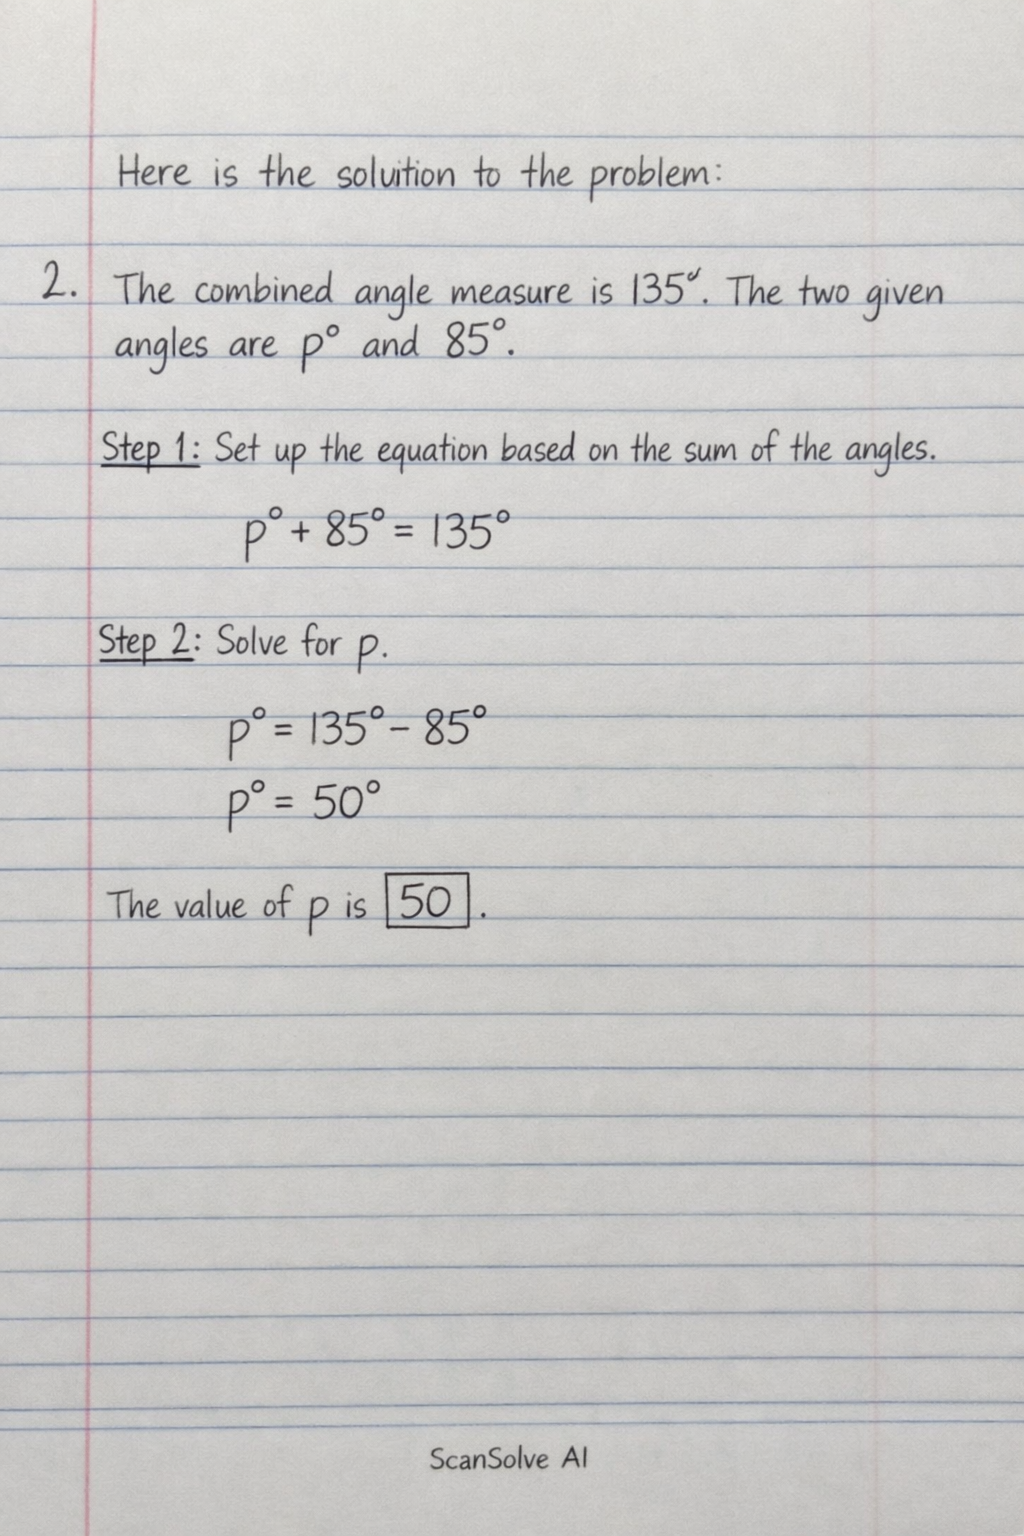 Here is the soluition to the problem:
2. The combined angle measure is 135°. The two given
angles are p° and 85°.
Step 1: Set up the equation based on the sum of the angles.
p° + 85° = 135°
Step 2: Solve for p.
p° = 135° - 85°
p° = 50°
The value of p is 50.
ScanSolve AI